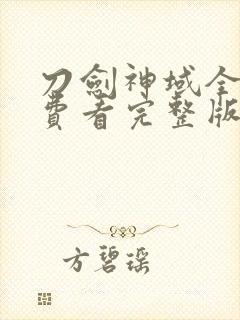 刀劍神域全
費看完整版
方碧瑶